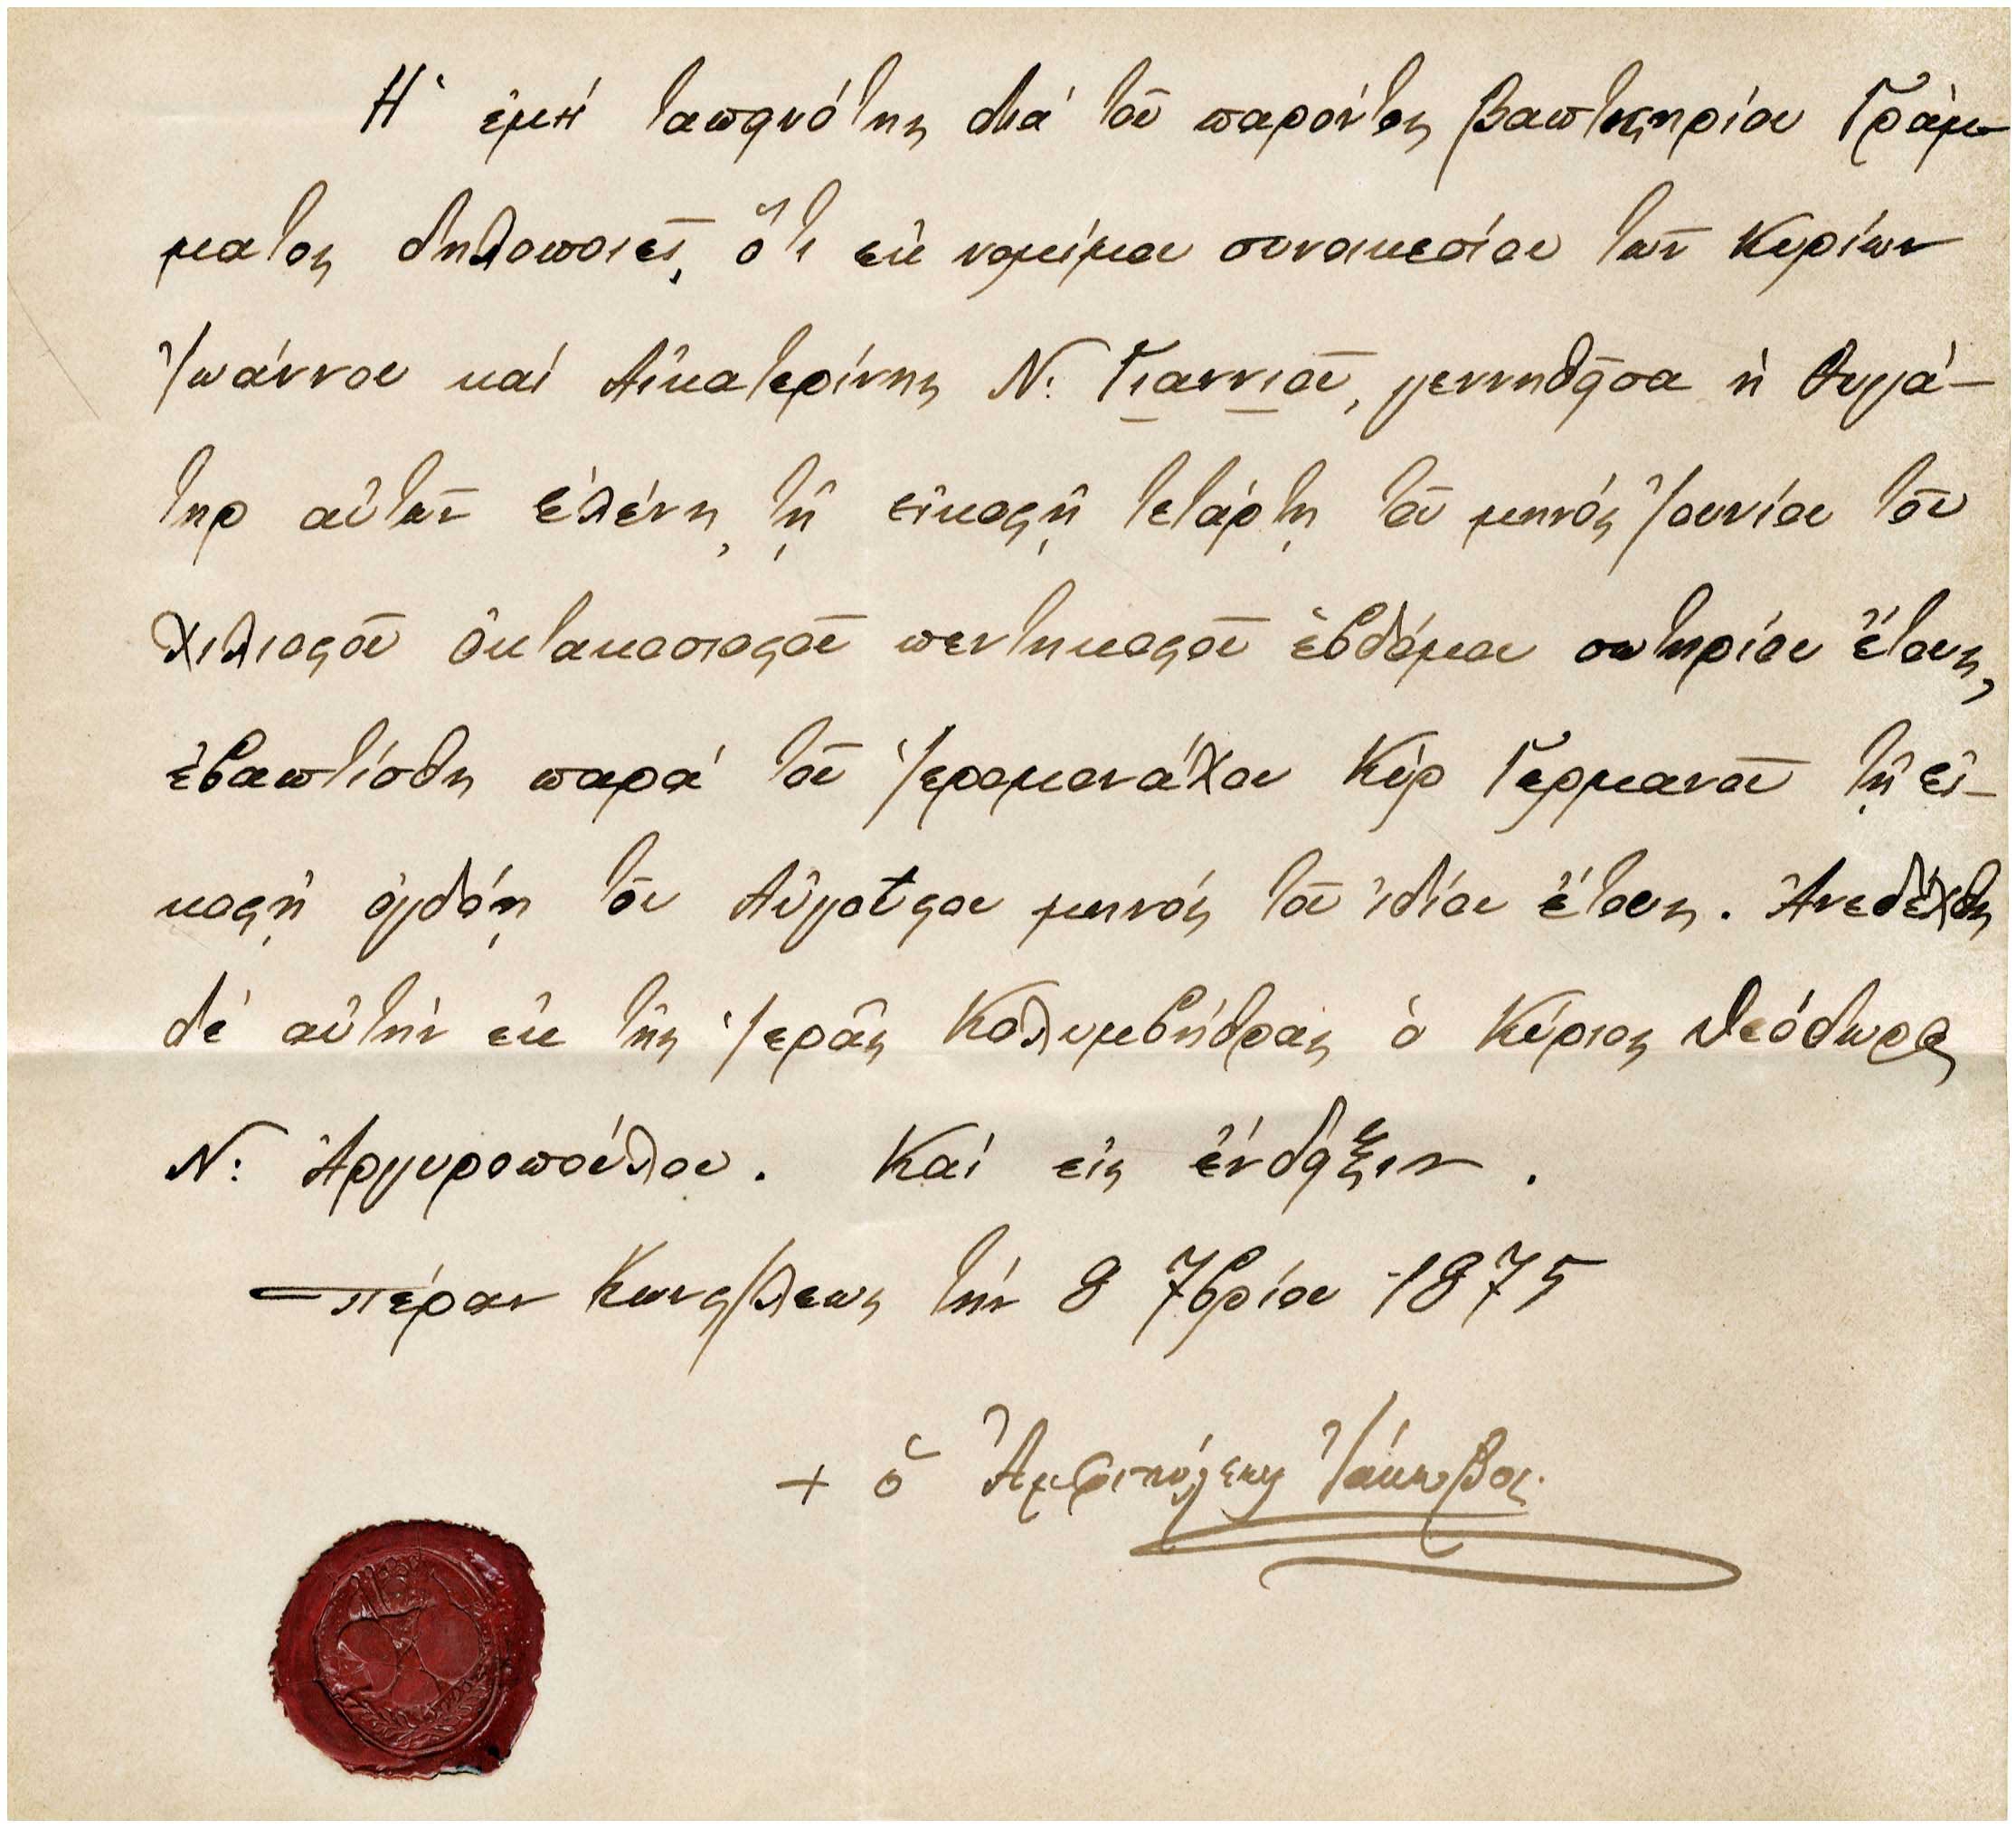 Ἡ ἐμὴ ταπεινότης διὰ τοῦ παρόντος βαπτιστηρίου Γράμ-
ματος δηλοποιεῖ, ὅτι ἐκ νομίμου συνοικεσίου τῶν Κυρίων
Ἰωάννου καὶ Αἰκατερίνης Ν: Γιαννιοῦ, γεννηθεῖσα ἡ θυγά-
τηρ αὐτῶν Ἑλένη, τῇ εἰκοστῇ τετάρτῃ τοῦ μηνός Ἰουνίου τοῦ
χιλιοστοῦ ὀκτακοσιοστοῦ πεντηκοστοῦ ἑβδόμου σωτηρίου ἔτους,
ἐβαπτίσθη παρά τοῦ Ἱερομονάχου Κύρ Γερμανοῦ τῇ εἰ-
κοστῇ ὀγδόῃ τοῦ Αὐγούστου μηνός τοῦ ἰδίου ἔτους. Ἀνεδέχθη
δέ αὐτήν ἐκ τῆς Ἱερᾶς Κολυμβήθρας ὁ Κύριος Θεόδωρος
Ν: Ἀργυροπούλου. Καί εἰς ἔνδειξιν.
Πέραν Κωνσ/λεως τήν 8 7βρίου 1875
+ ὁ Ἀμφιπόλεως Ἰάκωβος.